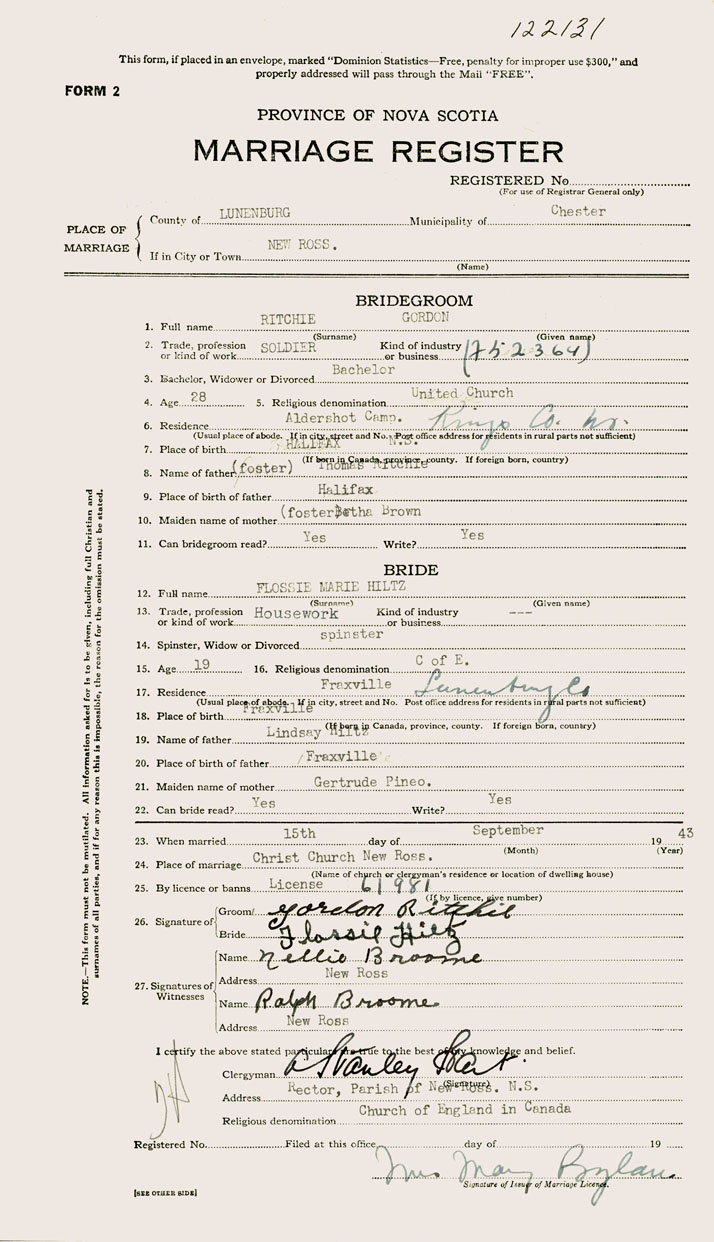 122131
This form, if placed in an envelope, marked "Dominion Statistics—Free, penalty for improper use $300," and
properly addressed will pass through the Mail "FREE".
FORM 2
PROVINCE OF NOVA SCOTIA
MARRIAGE REGISTER
REGISTERED No.
(For use of Registrar General only)
PLACE OF MARRIAGE
County of LUNENBURG Municipality of Chester
If in City or Town NEW ROSS.
(Name)
BRIDEGROOM
1. Full name RITCHIE GORDON
(Surname) (Given name)
2. Trade, profession or kind of work SOLDIER Kind of industry or business (F52364)
3. Bachelor, Widower or Divorced Bachelor
4. Age 28 5. Religious denomination United Church
6. Residence Aldershot Camp. Kings Co. N.S.
(Usual place of abode. If in city, street and No. Post office address for residents in rural parts not sufficient)
7. Place of birth HALIFAX N.S.
(If born in Canada, province, county. If foreign born, country)
8. Name of father (foster) Thomas Ritchie
9. Place of birth of father Halifax
10. Maiden name of mother (foster) Betha Brown
11. Can bridegroom read? Yes Write? Yes
BRIDE
12. Full name FLOSSIE MARIE HILTZ
(Surname) (Given name)
13. Trade, profession or kind of work Housework Kind of industry or business ---
14. Spinster, Widow or Divorced spinster
15. Age 19 16. Religious denomination C of E.
17. Residence Fraxville Lunenburg Co
(Usual place of abode. If in city, street and No. Post office address for residents in rural parts not sufficient)
18. Place of birth Fraxville
(If born in Canada, province, county. If foreign born, country)
19. Name of father Lindsay Hiltz
20. Place of birth of father Fraxville
21. Maiden name of mother Gertrude Pineo.
22. Can bride read? Yes Write? Yes
23. When married 15th day of September 19 43
(Month) (Year)
24. Place of marriage Christ Church New Ross.
(Name of church or clergyman's residence or location of dwelling house)
25. By licence or banns License 61981
(If by licence, give number)
26. Signature of
Groom Gordon Ritchie
Bride Flossie Hiltz
27. Signatures of Witnesses
Name Nellie Broome
Address New Ross
Name Ralph Broome
Address New Ross
I certify the above stated particulars are true to the best of my knowledge and belief.
Clergyman Stanley Hart
(Signature)
Address Rector, Parish of New Ross. N.S.
Religious denomination Church of England in Canada
Registered No. Filed at this office day of 19
Mrs Mary
Signature of Issuer of Marriage Licence.
[SEE OTHER SIDE]
NOTE.—This form must not be mutilated. All information asked for is to be given, including full Christian and
surnames of all parties, and if for any reason this is impossible, the reason for the omission must be stated.